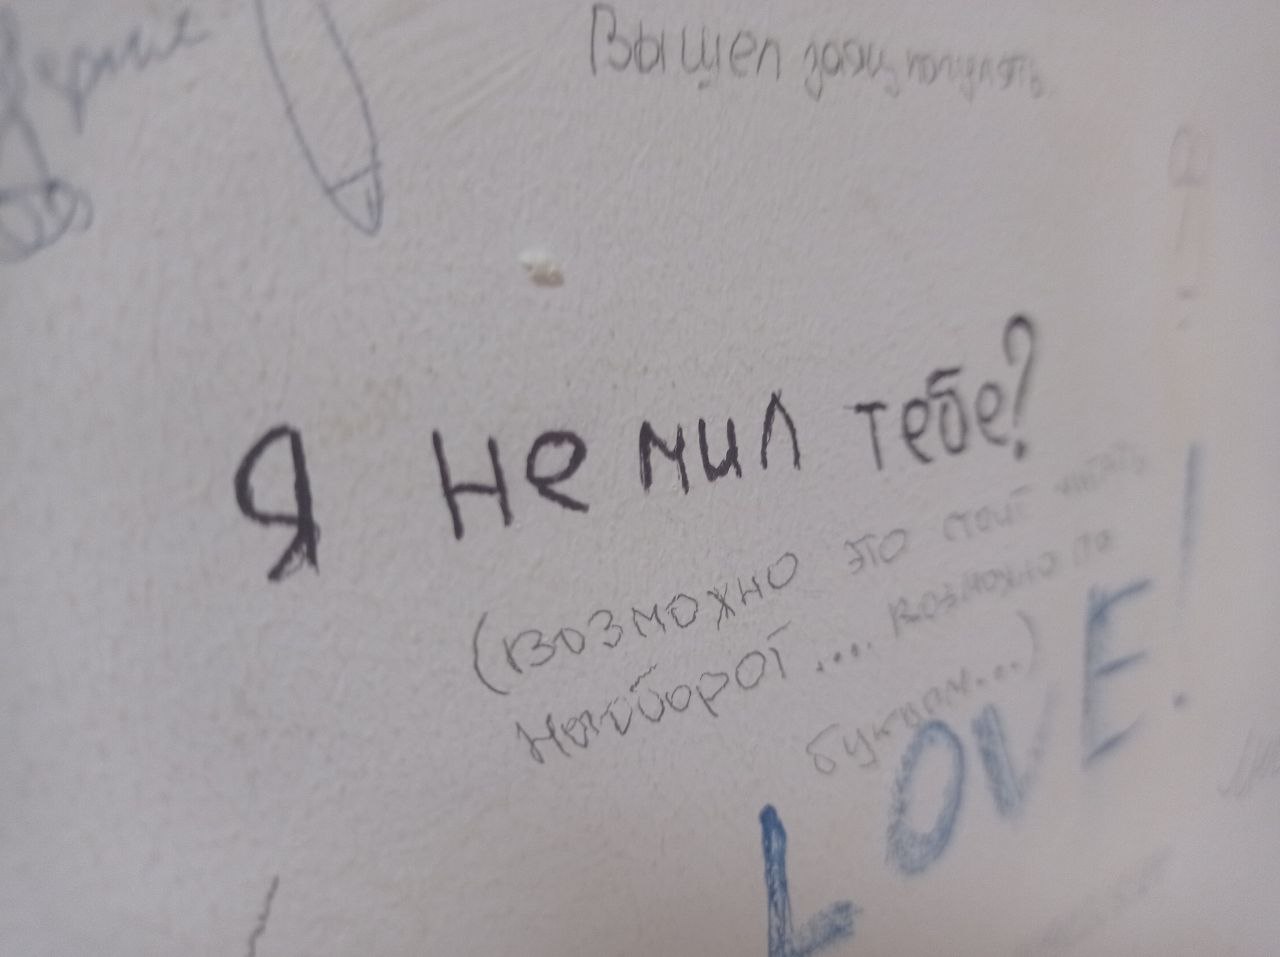 Вышел заяц погулять
Я не мил тебе?
(возможно это стоит читать
наоборот.... возможно по
буквам...)
LOVE!